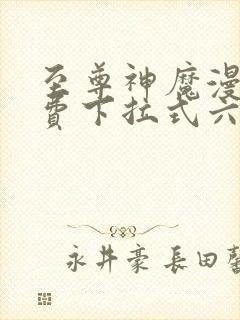 至尊神魔漫
费下拉式六
永井豪 長田馨